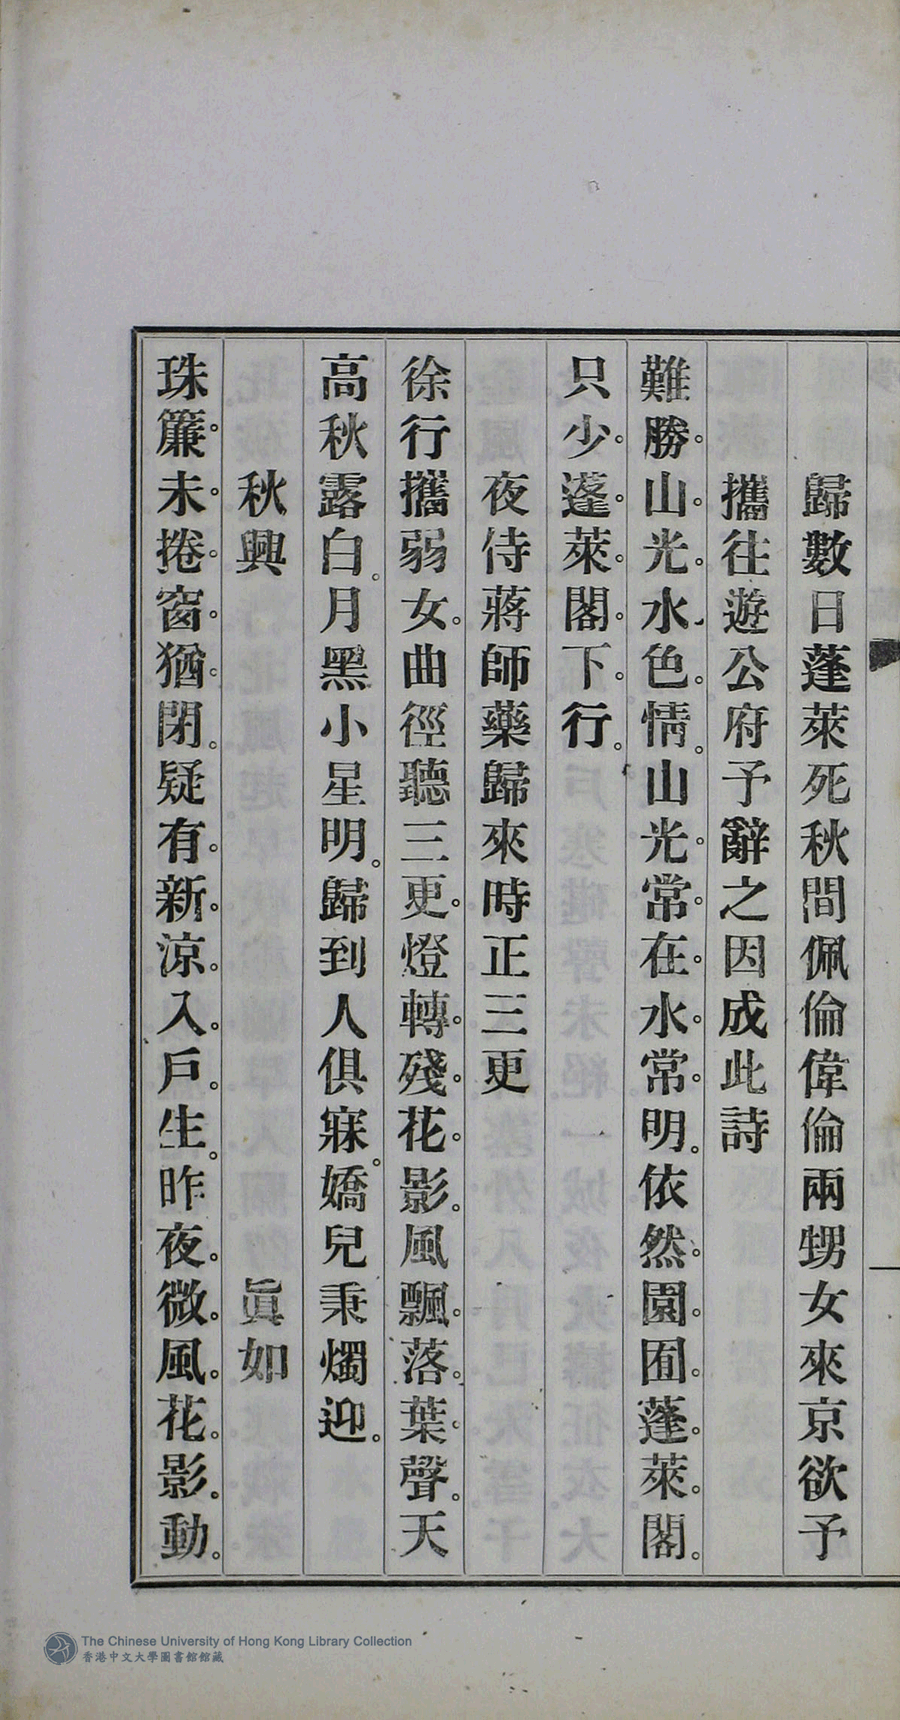 歸數日蓬萊死秋間佩倫偉倫兩甥女來京欲予
攜往遊公府予辭之因成此詩
難勝。山。光。水、色。情。山光。常。在。水。常。明。依然。園。囿。蓬。萊。閣。
只少。蓬。萊。閣。下。行。
夜侍蔣師藥歸來時正三更
徐行攜弱女。曲徑聽三更。燈轉。殘。花。影。風飄。落。葉。聲。天
高秋露白。月黑小星明。歸到人俱寐。嬌兒秉燭迎。
秋興 眞如
珠簾。未。捲。窗。猶。閉。疑有。新。涼。入。戶。生。昨夜。微。風。花。影。動。
The Chinese University of Hong Kong Library Collection
香港中文大學圖書館館藏